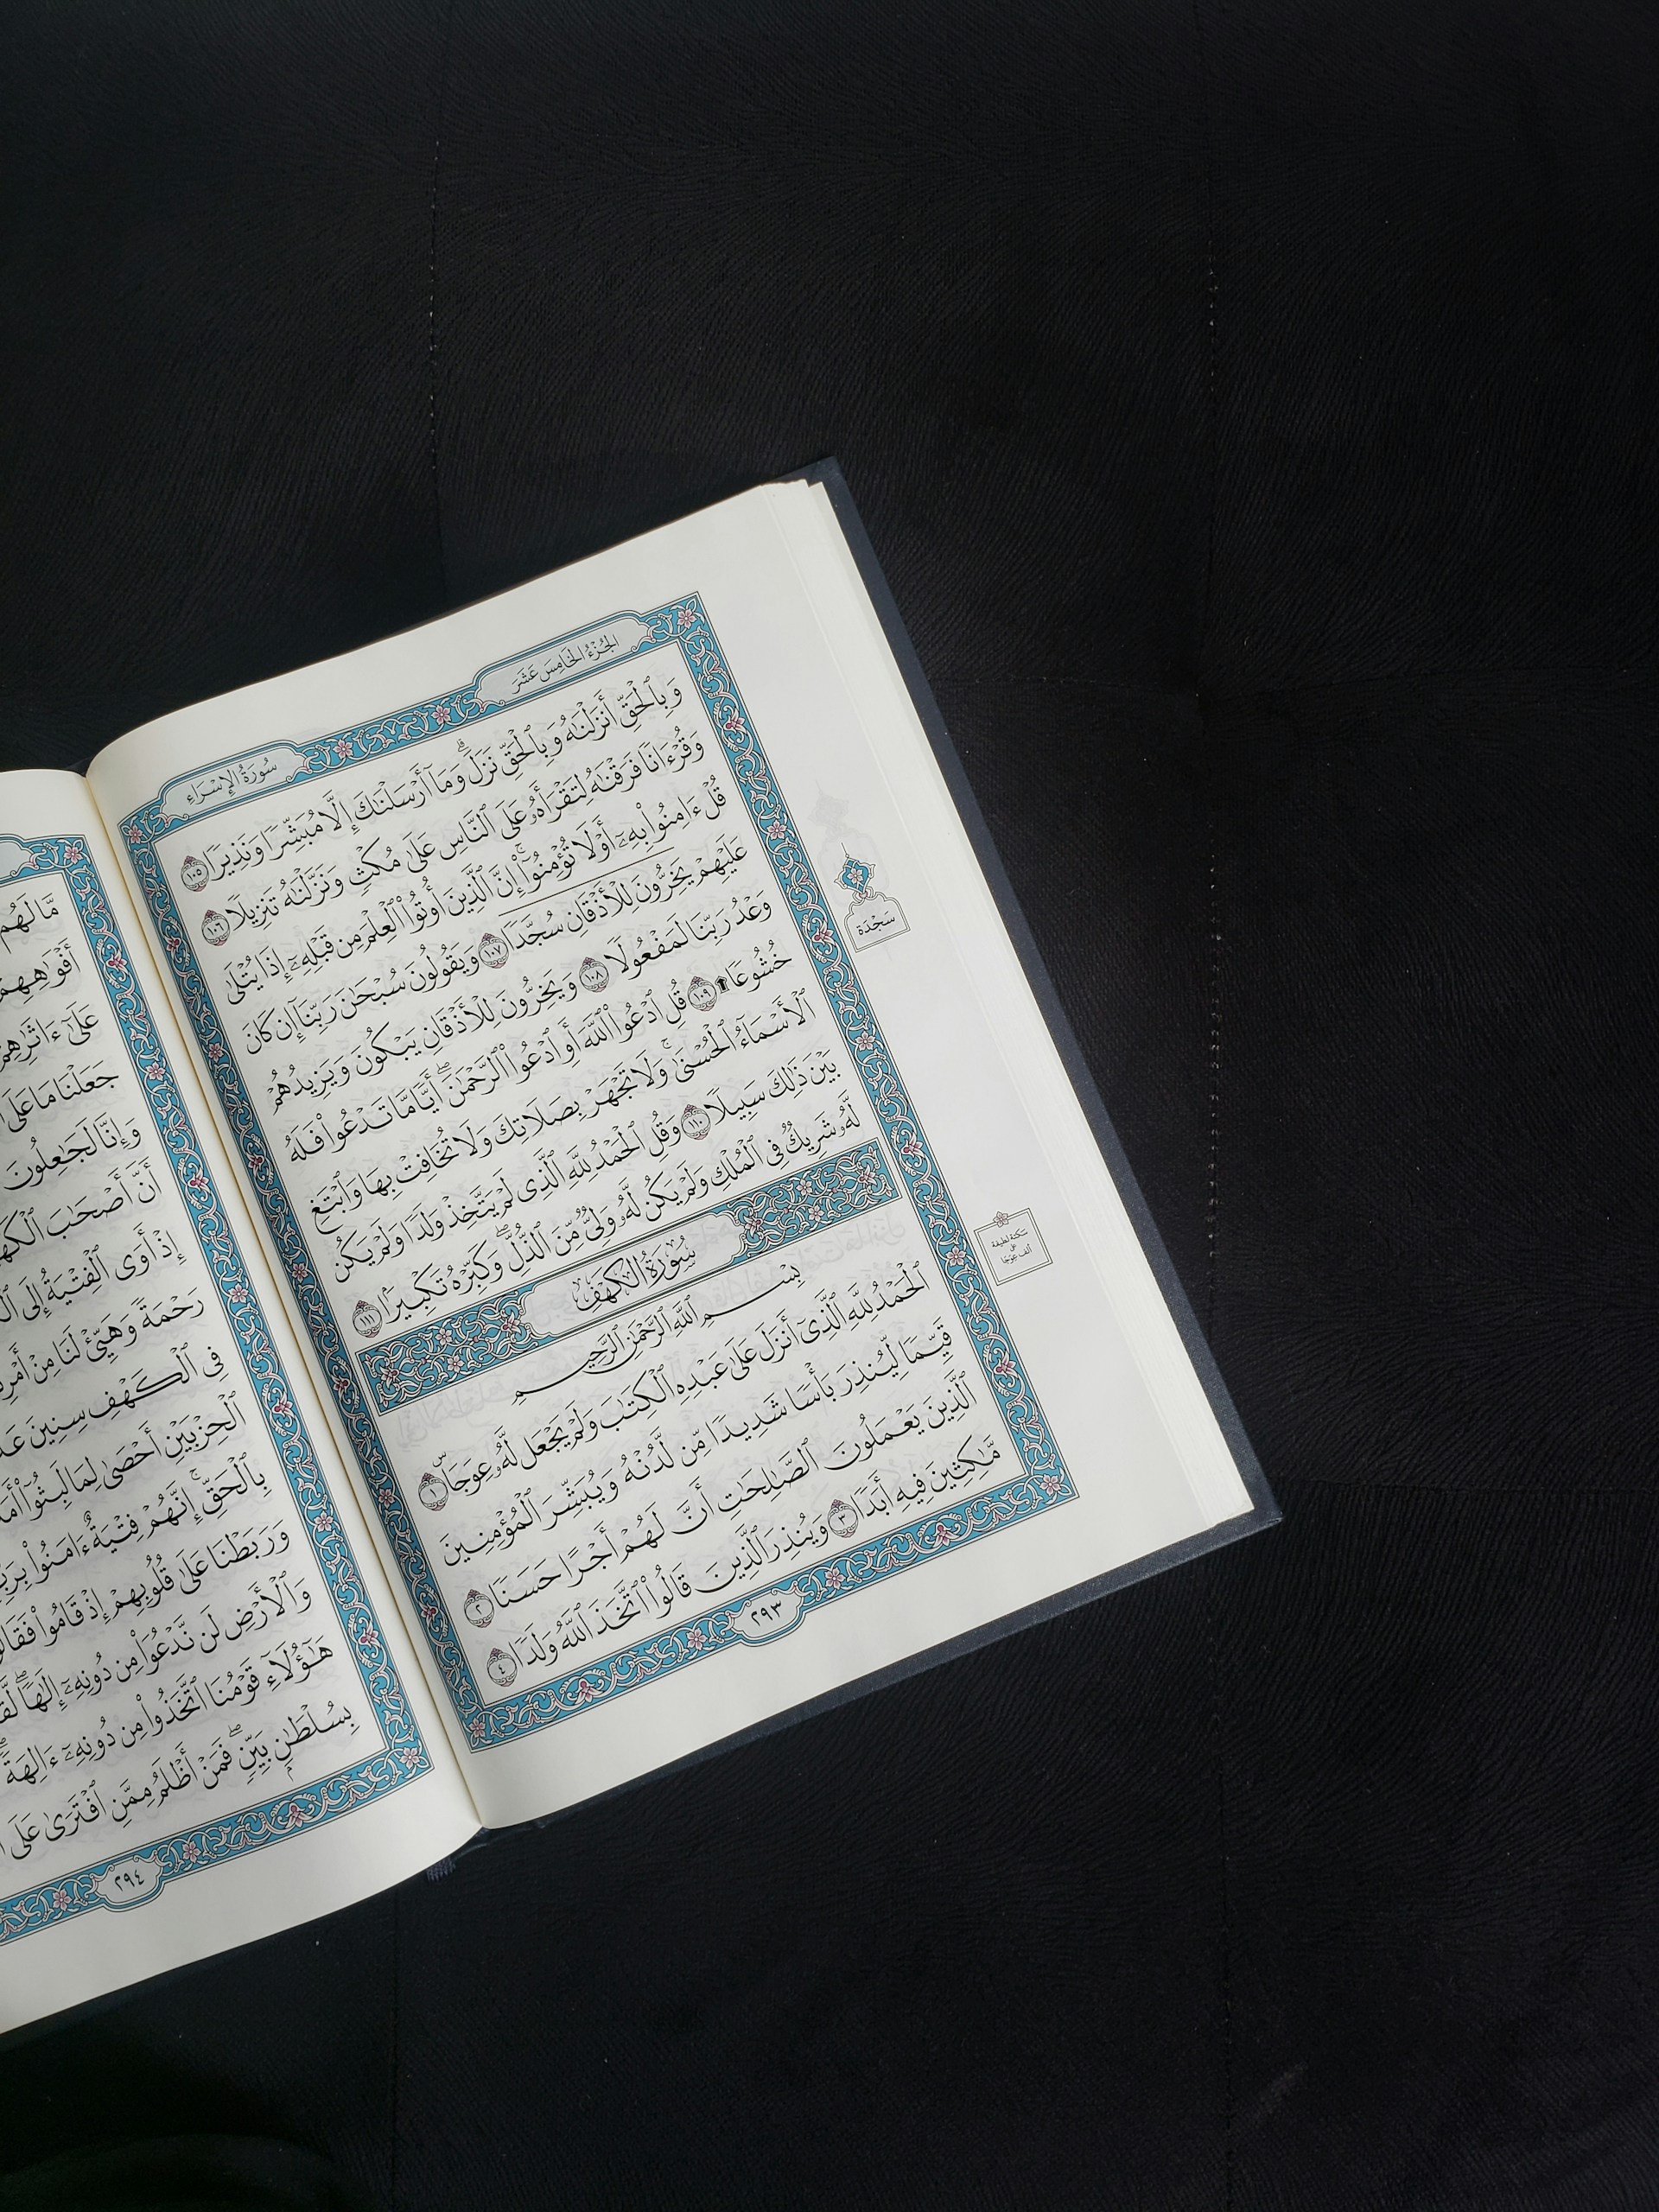 الجُزْءُ الخَامِسَ عَشَرَ
سُورَةُ الإِسْرَاءِ
وَبِٱلْحَقِّ أَنزَلْنَٰهُ وَبِٱلْحَقِّ نَزَلَۗ وَمَآ أَرْسَلْنَٰكَ إِلَّا مُبَشِّرًا وَنَذِيرًا ١٠٥
وَقُرْءَانًا فَرَقْنَٰهُ لِتَقْرَأَهُۥ عَلَى ٱلنَّاسِ عَلَىٰ مُكْثٍ وَنَزَّلْنَٰهُ تَنزِيلًا ١٠٦
قُلْ ءَامِنُوا۟ بِهِۦٓ أَوْ لَا تُؤْمِنُوٓا۟ۚ إِنَّ ٱلَّذِينَ أُوتُوا۟ ٱلْعِلْمَ مِن قَبْلِهِۦٓ إِذَا يُتْلَىٰ
عَلَيْهِمْ يَخِرُّونَ لِلْأَذْقَانِ سُجَّدًا ١٠٧ وَيَقُولُونَ سُبْحَٰنَ رَبِّنَآ إِن كَانَ
وَعْدُ رَبِّنَا لَمَفْعُولًا ١٠٨ وَيَخِرُّونَ لِلْأَذْقَانِ يَبْكُونَ وَيَزِيدُهُمْ
خُشُوعًا ۩ ١٠٩ قُلِ ٱدْعُوا۟ ٱللَّهَ أَوِ ٱدْعُوا۟ ٱلرَّحْمَٰنَۖ أَيًّا مَّا تَدْعُوا۟ فَلَهُ
ٱلْأَسْمَآءُ ٱلْحُسْنَىٰۚ وَلَا تَجْهَرْ بِصَلَاتِكَ وَلَا تُخَافِتْ بِهَا وَٱبْتَغِ
بَيْنَ ذَٰلِكَ سَبِيلًا ١١٠ وَقُلِ ٱلْحَمْدُ لِلَّهِ ٱلَّذِى لَمْ يَتَّخِذْ وَلَدًا وَلَمْ يَكُن
لَّهُۥ شَرِيكٌ فِى ٱلْمُلْكِ وَلَمْ يَكُن لَّهُۥ وَلِىٌّ مِّنَ ٱلذُّلِّۖ وَكَبِّرْهُ تَكْبِيرًۢا ١١١
سُورَةُ الكَهْفِ
بِسْمِ ٱللَّهِ ٱلرَّحْمَٰنِ ٱلرَّحِيمِ
ٱلْحَمْدُ لِلَّهِ ٱلَّذِىٓ أَنزَلَ عَلَىٰ عَبْدِهِ ٱلْكِتَٰبَ وَلَمْ يَجْعَل لَّهُۥ عِوَجَاۜ ١
قَيِّمًا لِّيُنذِرَ بَأْسًا شَدِيدًا مِّن لَّدُنْهُ وَيُبَشِّرَ ٱلْمُؤْمِنِينَ
ٱلَّذِينَ يَعْمَلُونَ ٱلصَّٰلِحَٰتِ أَنَّ لَهُمْ أَجْرًا حَسَنًا ٢
مَّٰكِثِينَ فِيهِ أَبَدًا ٣ وَيُنذِرَ ٱلَّذِينَ قَالُوا۟ ٱتَّخَذَ ٱللَّهُ وَلَدًا ٤
٢٩٣
سَجْدَة
سكتة لطيفة
على
ألف عوجا
مَّا لَهُم
أَفْوَٰهِهِمْ
عَلَىٰٓ ءَاثَٰرِهِمْ
جَعَلْنَا مَا عَلَى
وَإِنَّا لَجَٰعِلُونَ
أَنَّ أَصْحَٰبَ ٱلْكَهْفِ
إِذْ أَوَى ٱلْفِتْيَةُ إِلَى
رَحْمَةً وَهَيِّئْ لَنَا مِنْ أَمْرِنَا
فِى ٱلْكَهْفِ سِنِينَ
ٱلْحِزْبَيْنِ أَحْصَىٰ لِمَا لَبِثُوٓا۟
بِٱلْحَقِّۚ إِنَّهُمْ فِتْيَةٌ ءَامَنُوا۟
وَرَبَطْنَا عَلَىٰ قُلُوبِهِمْ إِذْ قَامُوا۟
وَٱلْأَرْضِ لَن نَّدْعُوَا۟ مِن دُونِهِۦٓ إِلَٰهًاۖ
هَٰٓؤُلَآءِ قَوْمُنَا ٱتَّخَذُوا۟ مِن دُونِهِۦٓ ءَالِهَةًۖ
بِسُلْطَٰنٍۭ بَيِّنٍۖ فَمَنْ أَظْلَمُ مِمَّنِ ٱفْتَرَىٰ عَلَى
٢٩٤